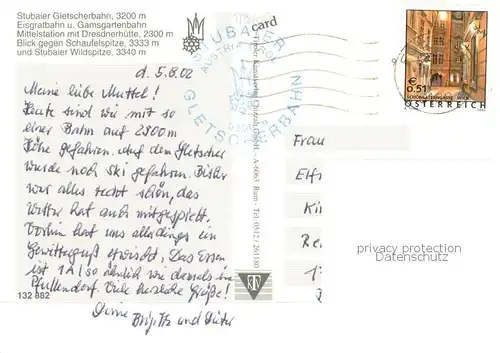 Stubaier Gletscherbahn, 3200 m
Eisgratbahn u. Gamsgartenbahn
Mittelstation mit Dresdnerhütte, 2300 m
Blick gegen Schaufelspitze, 3333 m
und Stubaier Wildspitze, 3340 m
card
STUBAIER
AUSTRIA
GLETSCHERBAHN
€ 0,51
SCHÖNLATERNGASSE WIEN
ÖSTERREICH
d. 5.8.02
Meine liebe Muttel!
Heute sind wir mit so
einer Bahn auf 2900m
Höhe gefahren. Auf dem Gletscher
wurde noch Ski gefahren. Bisher
war alles recht schön, das
Wetter hat auch mitgespielt.
Vorhin hat uns allerdings ein
Gewitterguß erwischt. Das Essen
ist 1A/so ähnlich wie damals in
Pfullendorf. Viele herzliche Grüße!
Deine Brigitte und Dieter
132 882
A-6063 Rum - Tel. 0512 / 261180
KTV
Frau
Elfr
Ki
Re
privacy protection
Datenschutz